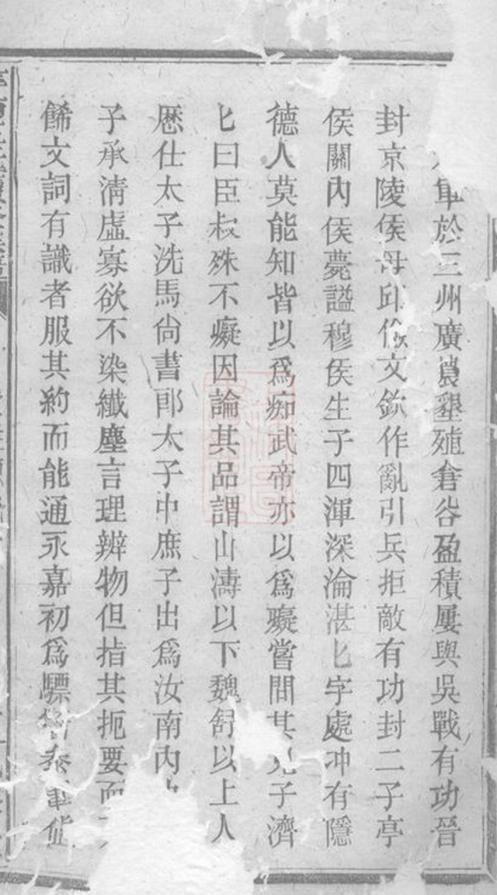 軍於三州廣農墾殖倉谷盈積屢與吳戰有功晉
封京陵侯毋邱儉文欽作亂引兵拒敵有功封二子亭
侯關內侯薨謚穆侯生子四渾深淪湛匕字處冲有隱
德人莫能知皆以爲痴武帝亦以爲癡嘗問其兄子濟
匕曰臣叔殊不癡因論其品謂山濤以下魏舒以上人
歷仕太子洗馬尙書郎太子中庶子出爲汝南內
子承淸虛寡欲不染纖塵言理辨物但指其扼要而
餙文詞有識者服其約而能通永嘉初爲驃 叅軍値